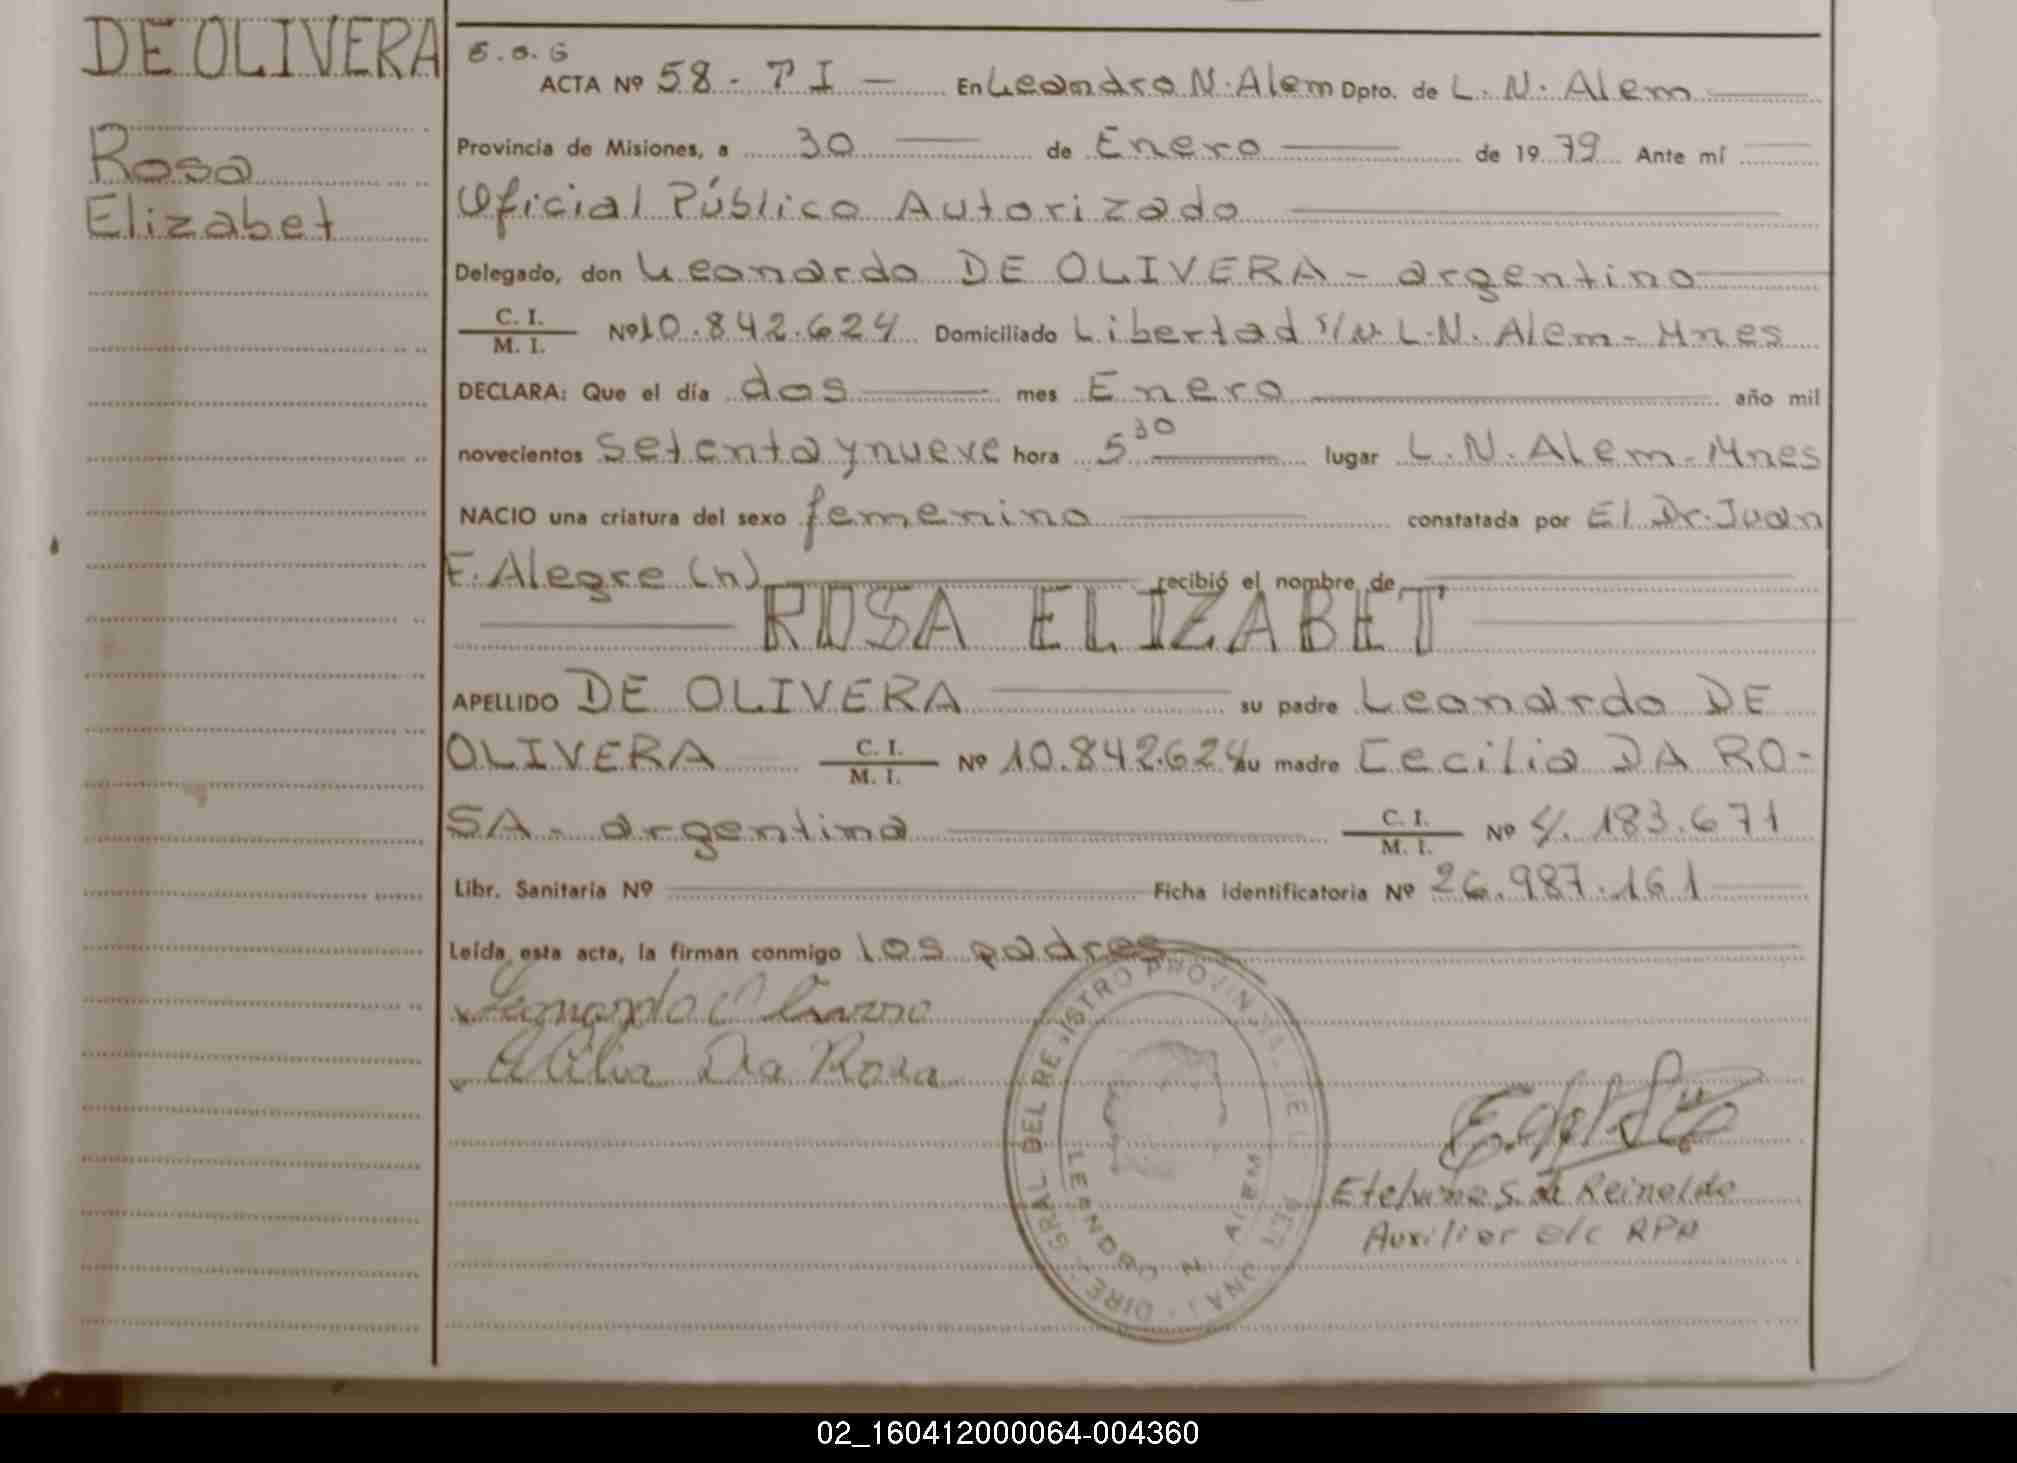 DE OLIVERA
Rosa
Elizabet
ACTA Nº 58 - T I — En Leandro N. Alem Dpto. de L. N. Alem
Provincia de Misiones, a 30 de Enero de 1979 Ante mí
Oficial Público Autorizado
Delegado, don Leonardo DE OLIVERA - argentino
C. I.
M. I. Nº 10.842.624 Domiciliado Libertad s/n. L.N. Alem - Mnes
DECLARA: Que el día dos mes Enero año mil
novecientos Setenta y nueve hora 5 30 lugar L. N. Alem - Mnes
NACIO una criatura del sexo femenino constatada por El Dr. Juan
F. Alegre (h) recibió el nombre de
ROSA ELIZABET
APELLIDO DE OLIVERA su padre Leonardo DE
OLIVERA C. I. M. I. Nº 10.842.624 su madre Cecilia DA RO-
SA - argentina C. I. M. I. Nº 4.183.671
Libr. Sanitaria Nº Ficha identificatoria Nº 26.987.161
Leída esta acta, la firman conmigo los padres
Da Rosa
DIREC. GRAL DEL REGISTRO PROVIN
LEANDRO N. ALEM
S. de Reinoldo
Auxiliar
02_160412000064-004360